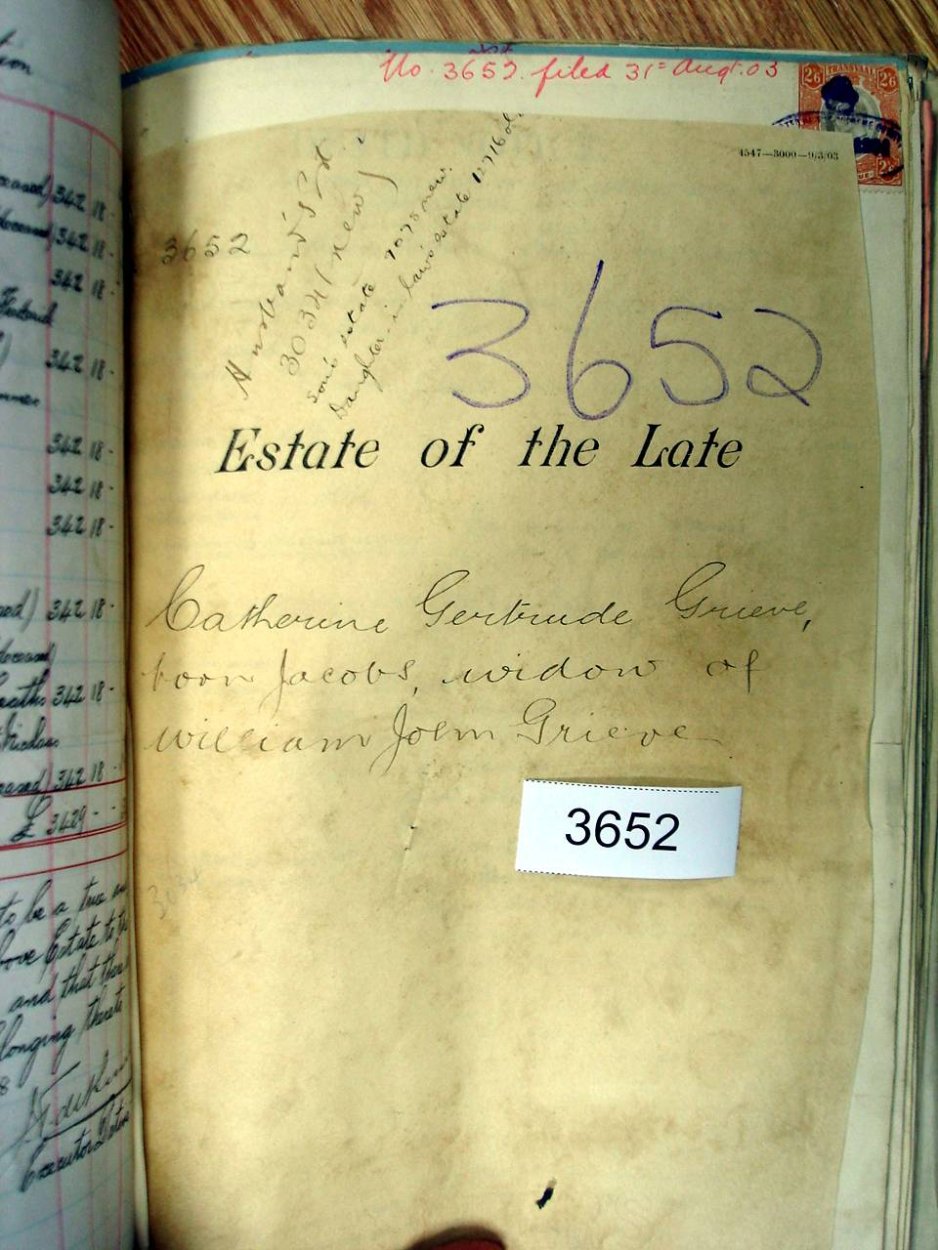 tion
No. 3652. filed 31st Augt. 03
TRANSVAAL
2/6 2/6
4547—3000—9/3/03
3652
Husband's Est
30341 new
son's estate 7078 new.
Daughter in law's estate 12716 old.
3652
Estate of the Late
Catherine Gertrude Grieve,
born Jacobs, widow of
William John Grieve
3652
ceased) 342 18 -
342 18 -
342 18 -
342 18 -
342 18 -
342 18 -
342 18 -
342 18 -
deceased
342 18 -
eased) 342 18 -
£ 3429 - -
to be a true
bove Estate to the
and that there
longing thereto
Executor Dative